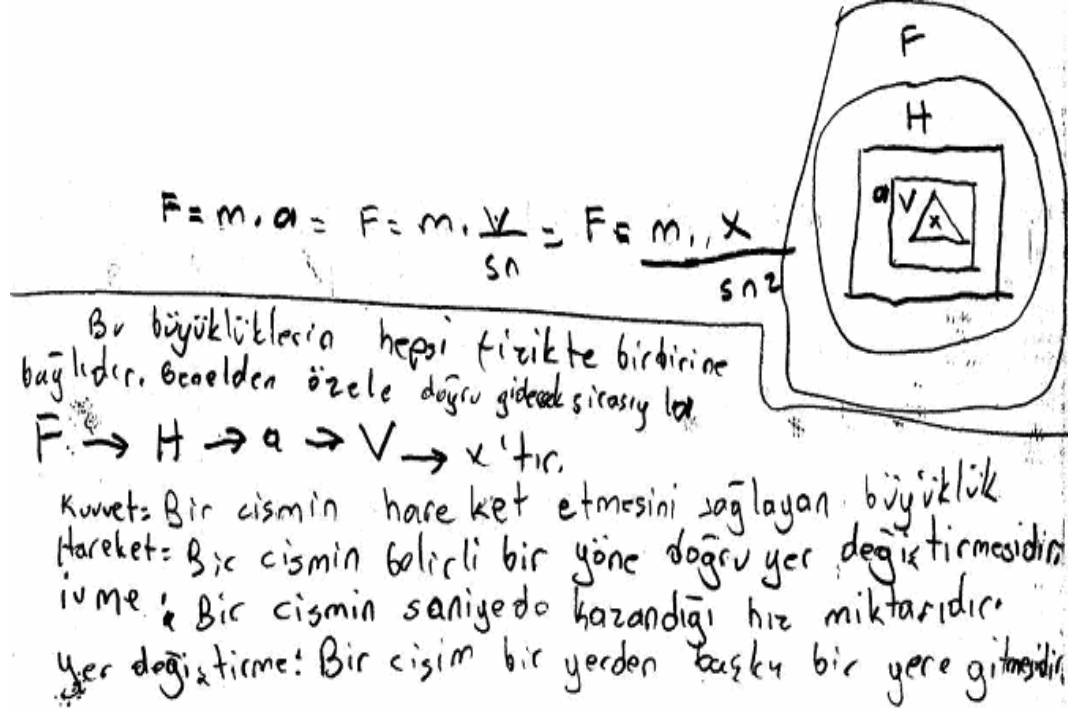 F
H
a
V
x
F = m . a = F = m . V/sn = F = m . x/sn²
Bu büyüklüklerin hepsi fizikte birbirine
bağlıdır. Genelden özele doğru gidecek sırasıyla
F → H → a → V → x'tır.
Kuvvet= Bir cismin hareket etmesini sağlayan büyüklük
Hareket= Bir cismin belirli bir yöne doğru yer değiştirmesidir.
ivme : Bir cismin saniyede kazandığı hız miktarıdır.
Yer değiştirme: Bir cisim bir yerden başka bir yere gitmesidir